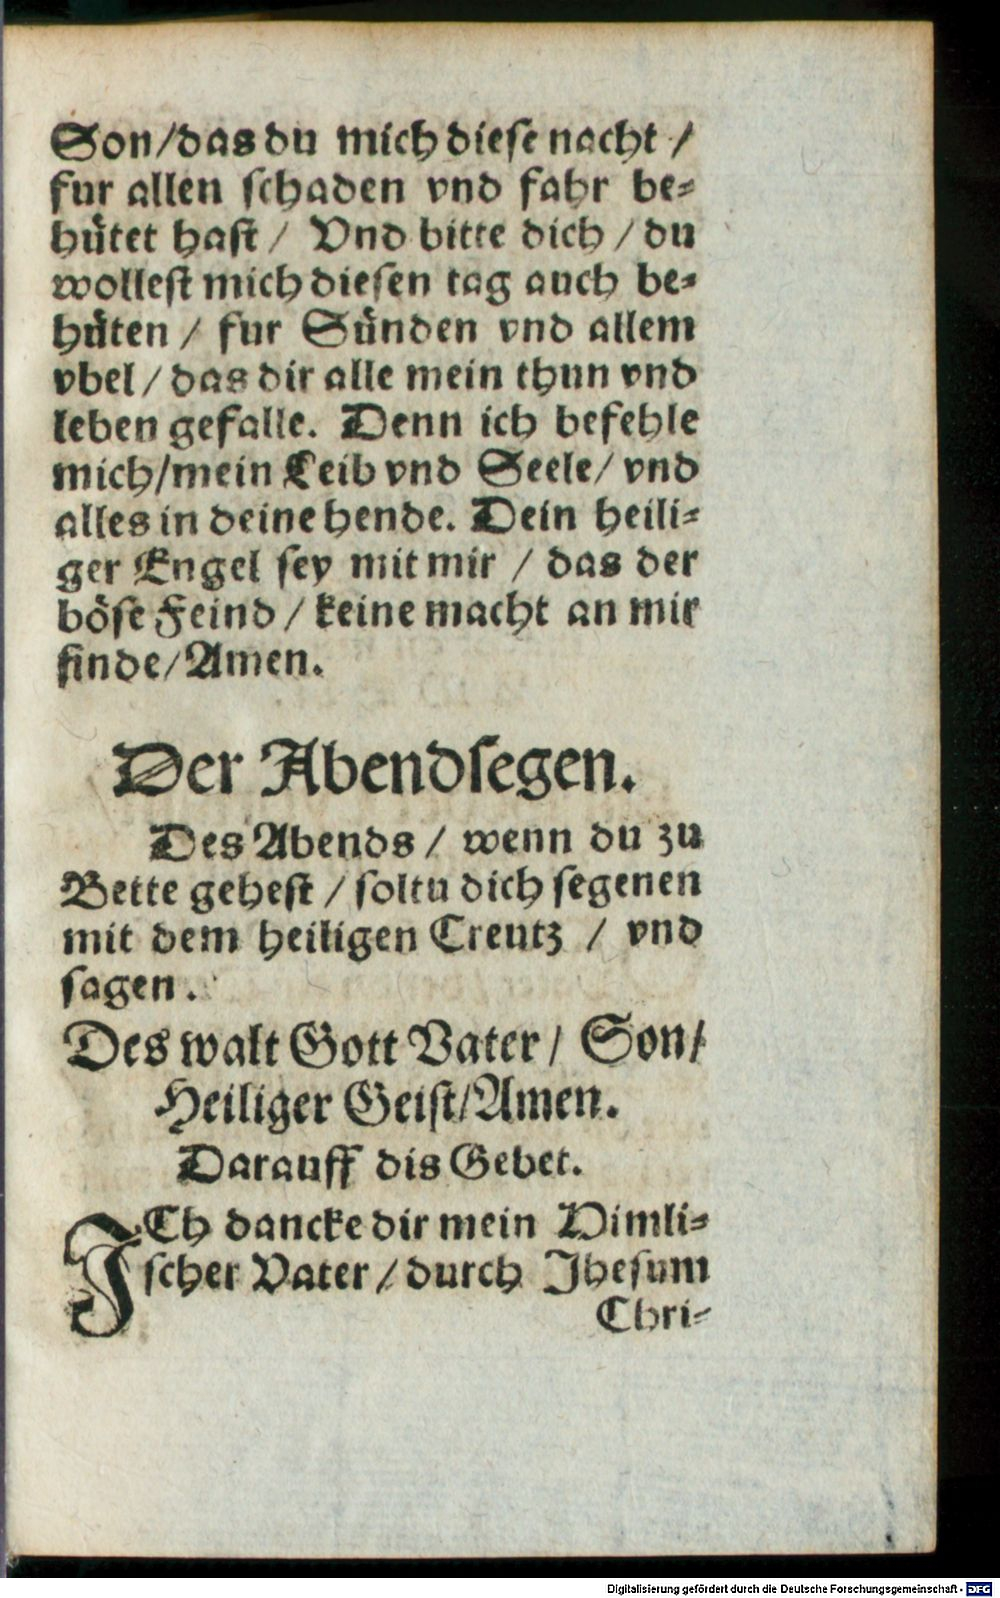 Son/das du mich diese nacht /
fur allen schaden vnd fahr be⸗
hütet hast / Vnd bitte dich / du
wollest mich diesen tag auch be⸗
hüten / fur Sünden vnd allem
vbel / das dir alle mein thun vnd
leben gefalle. Denn ich befehle
mich/mein Leib vnd Seele/ vnd
alles in deine hende. Dein heili⸗
ger Engel sey mit mir / das der
böse Feind / keine macht an mir
finde/Amen.
Der Abendsegen.
Des Abends / wenn du zu
Bette gehest / soltu dich segenen
mit dem heiligen Creutz / vnd
sagen.
Des walt Gott Vater/ Son/
Heiliger Geist/Amen.
Darauff dis Gebet.
ICh dancke dir mein Himli⸗
scher Vater / durch Jhesum
Chri⸗
Digitalisierung gefördert durch die Deutsche Forschungsgemeinschaft - DFG